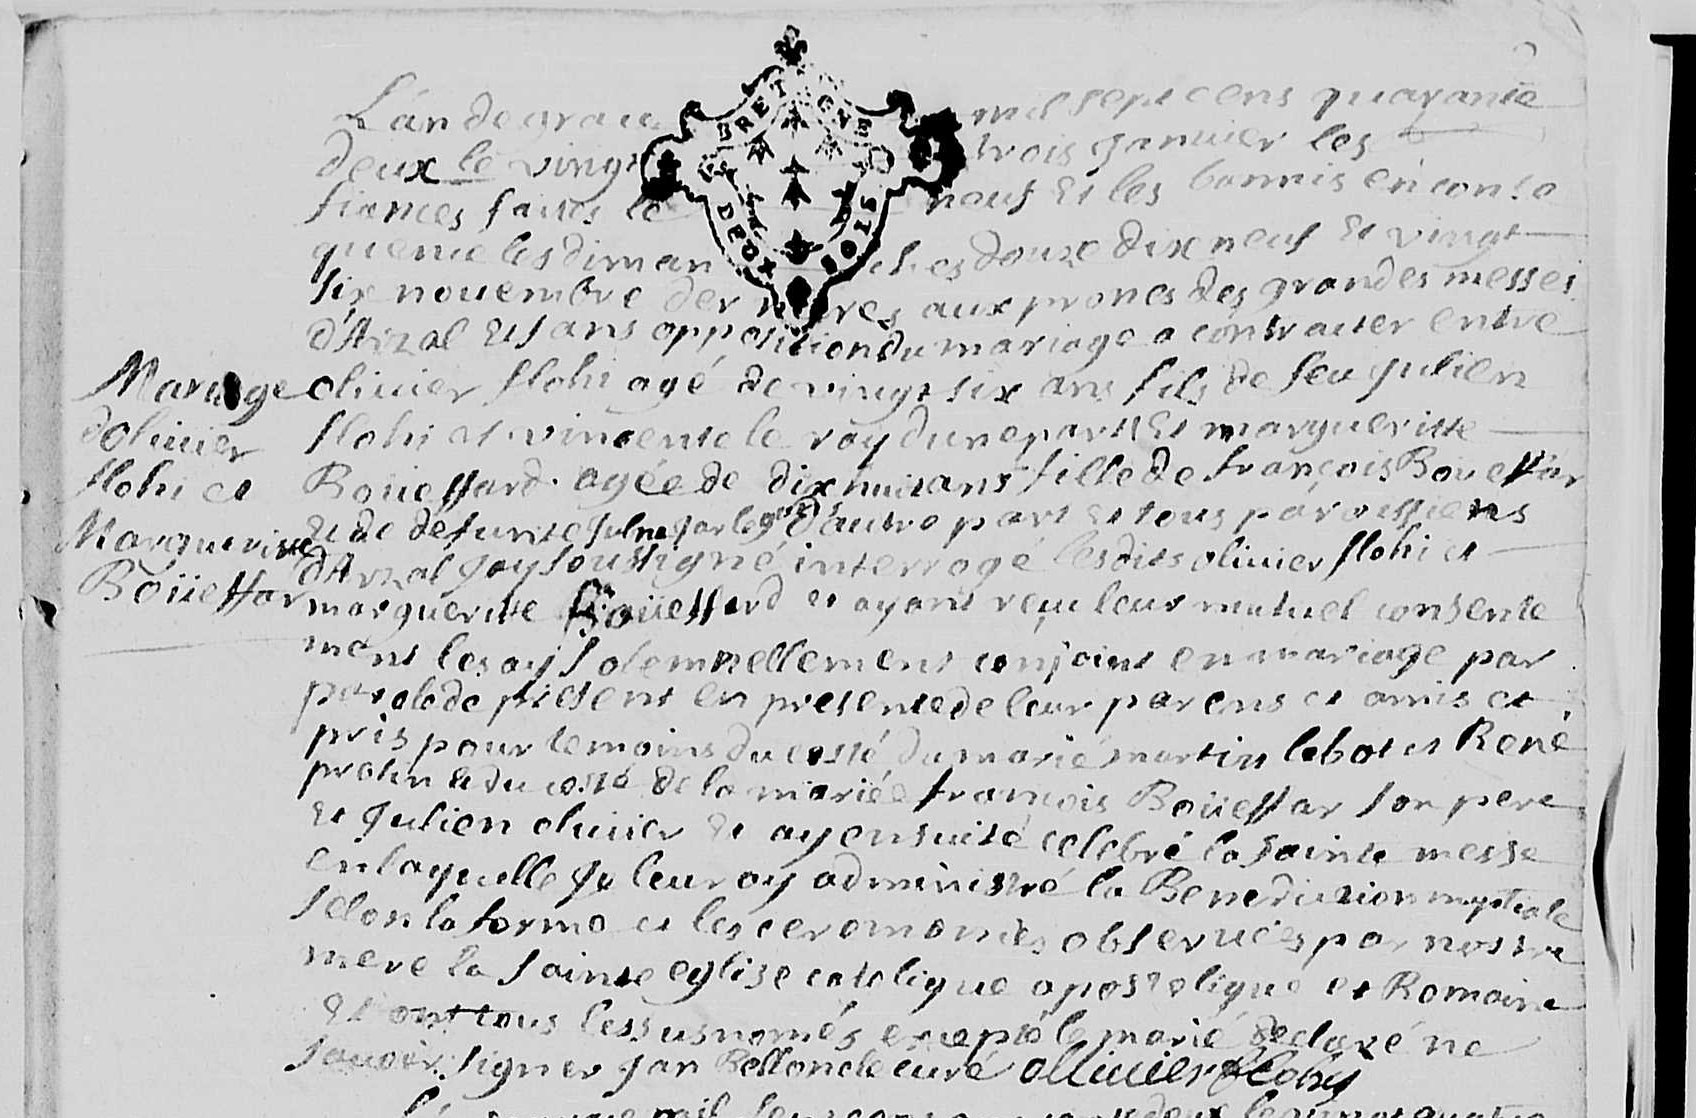 BRETAGNE
DEUX SOLS
L'an de grace mil sept cens quarante
deux le vingt trois janvier les
fiances faites le neuf Et les bannis en conse
quence les diman ches douze dix neuf Et vingt
six novembre dernieres aux prones des grandes messes
d'Arzal Et sans opposition du mariage a contracter entre
Mariage
d'olivier
flohi et
Margueritte
Boüeffar
olivier flohi agé de vingt six ans fils de feu Julien
flohi et vincente le roy d'une part Et margueritte
Boüeffard agée de dix huit ans fille de françois Boüeffar
Et de defunte d'autre part Et tous paroissiens
d'Arzal Jay soussigné interrogé lesdits olivier flohi et
marguerite Boüeffard et ayant reçu leur mutuel consente
ment les ay solemnellement conjoint en mariage par
parole de present en presence de leur parens et amis et
pris pour temoins du costé du marié martin lebot et René
Et du costé de la mariée françois Boüeffar son pere
Et Julien olivier Et ay ensuite celebré la sainte messe
en laquelle Je leur ay administré la Benediction nuptiale
selon la forme et les ceremonies observées par nostre
mere la sainte eglise catolique apostolique et Romaine
Et ont tous les susnomés excepté le marié declaré ne
savoir signer Jan curé ollivier flohy